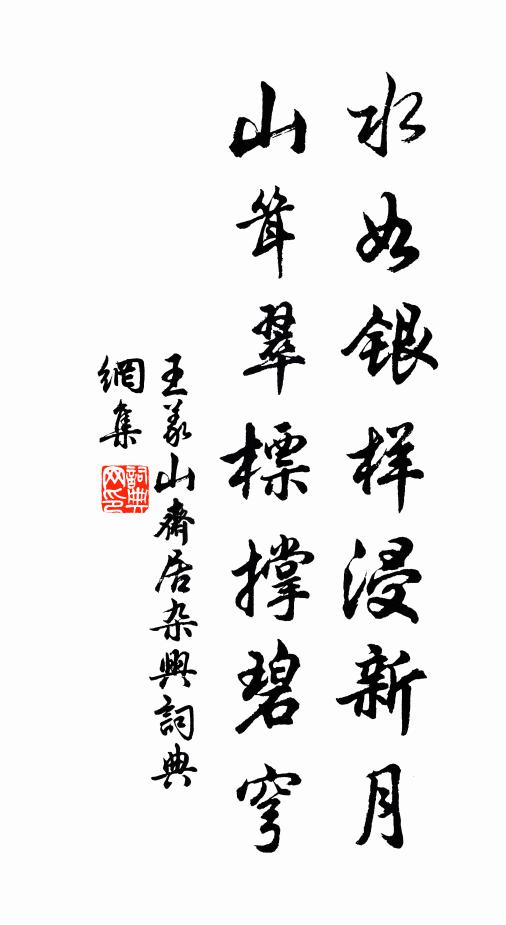 水如银样浸新月
山耸翠標撑碧穹
王義山齋居杂興詞典
網集
詞典网印